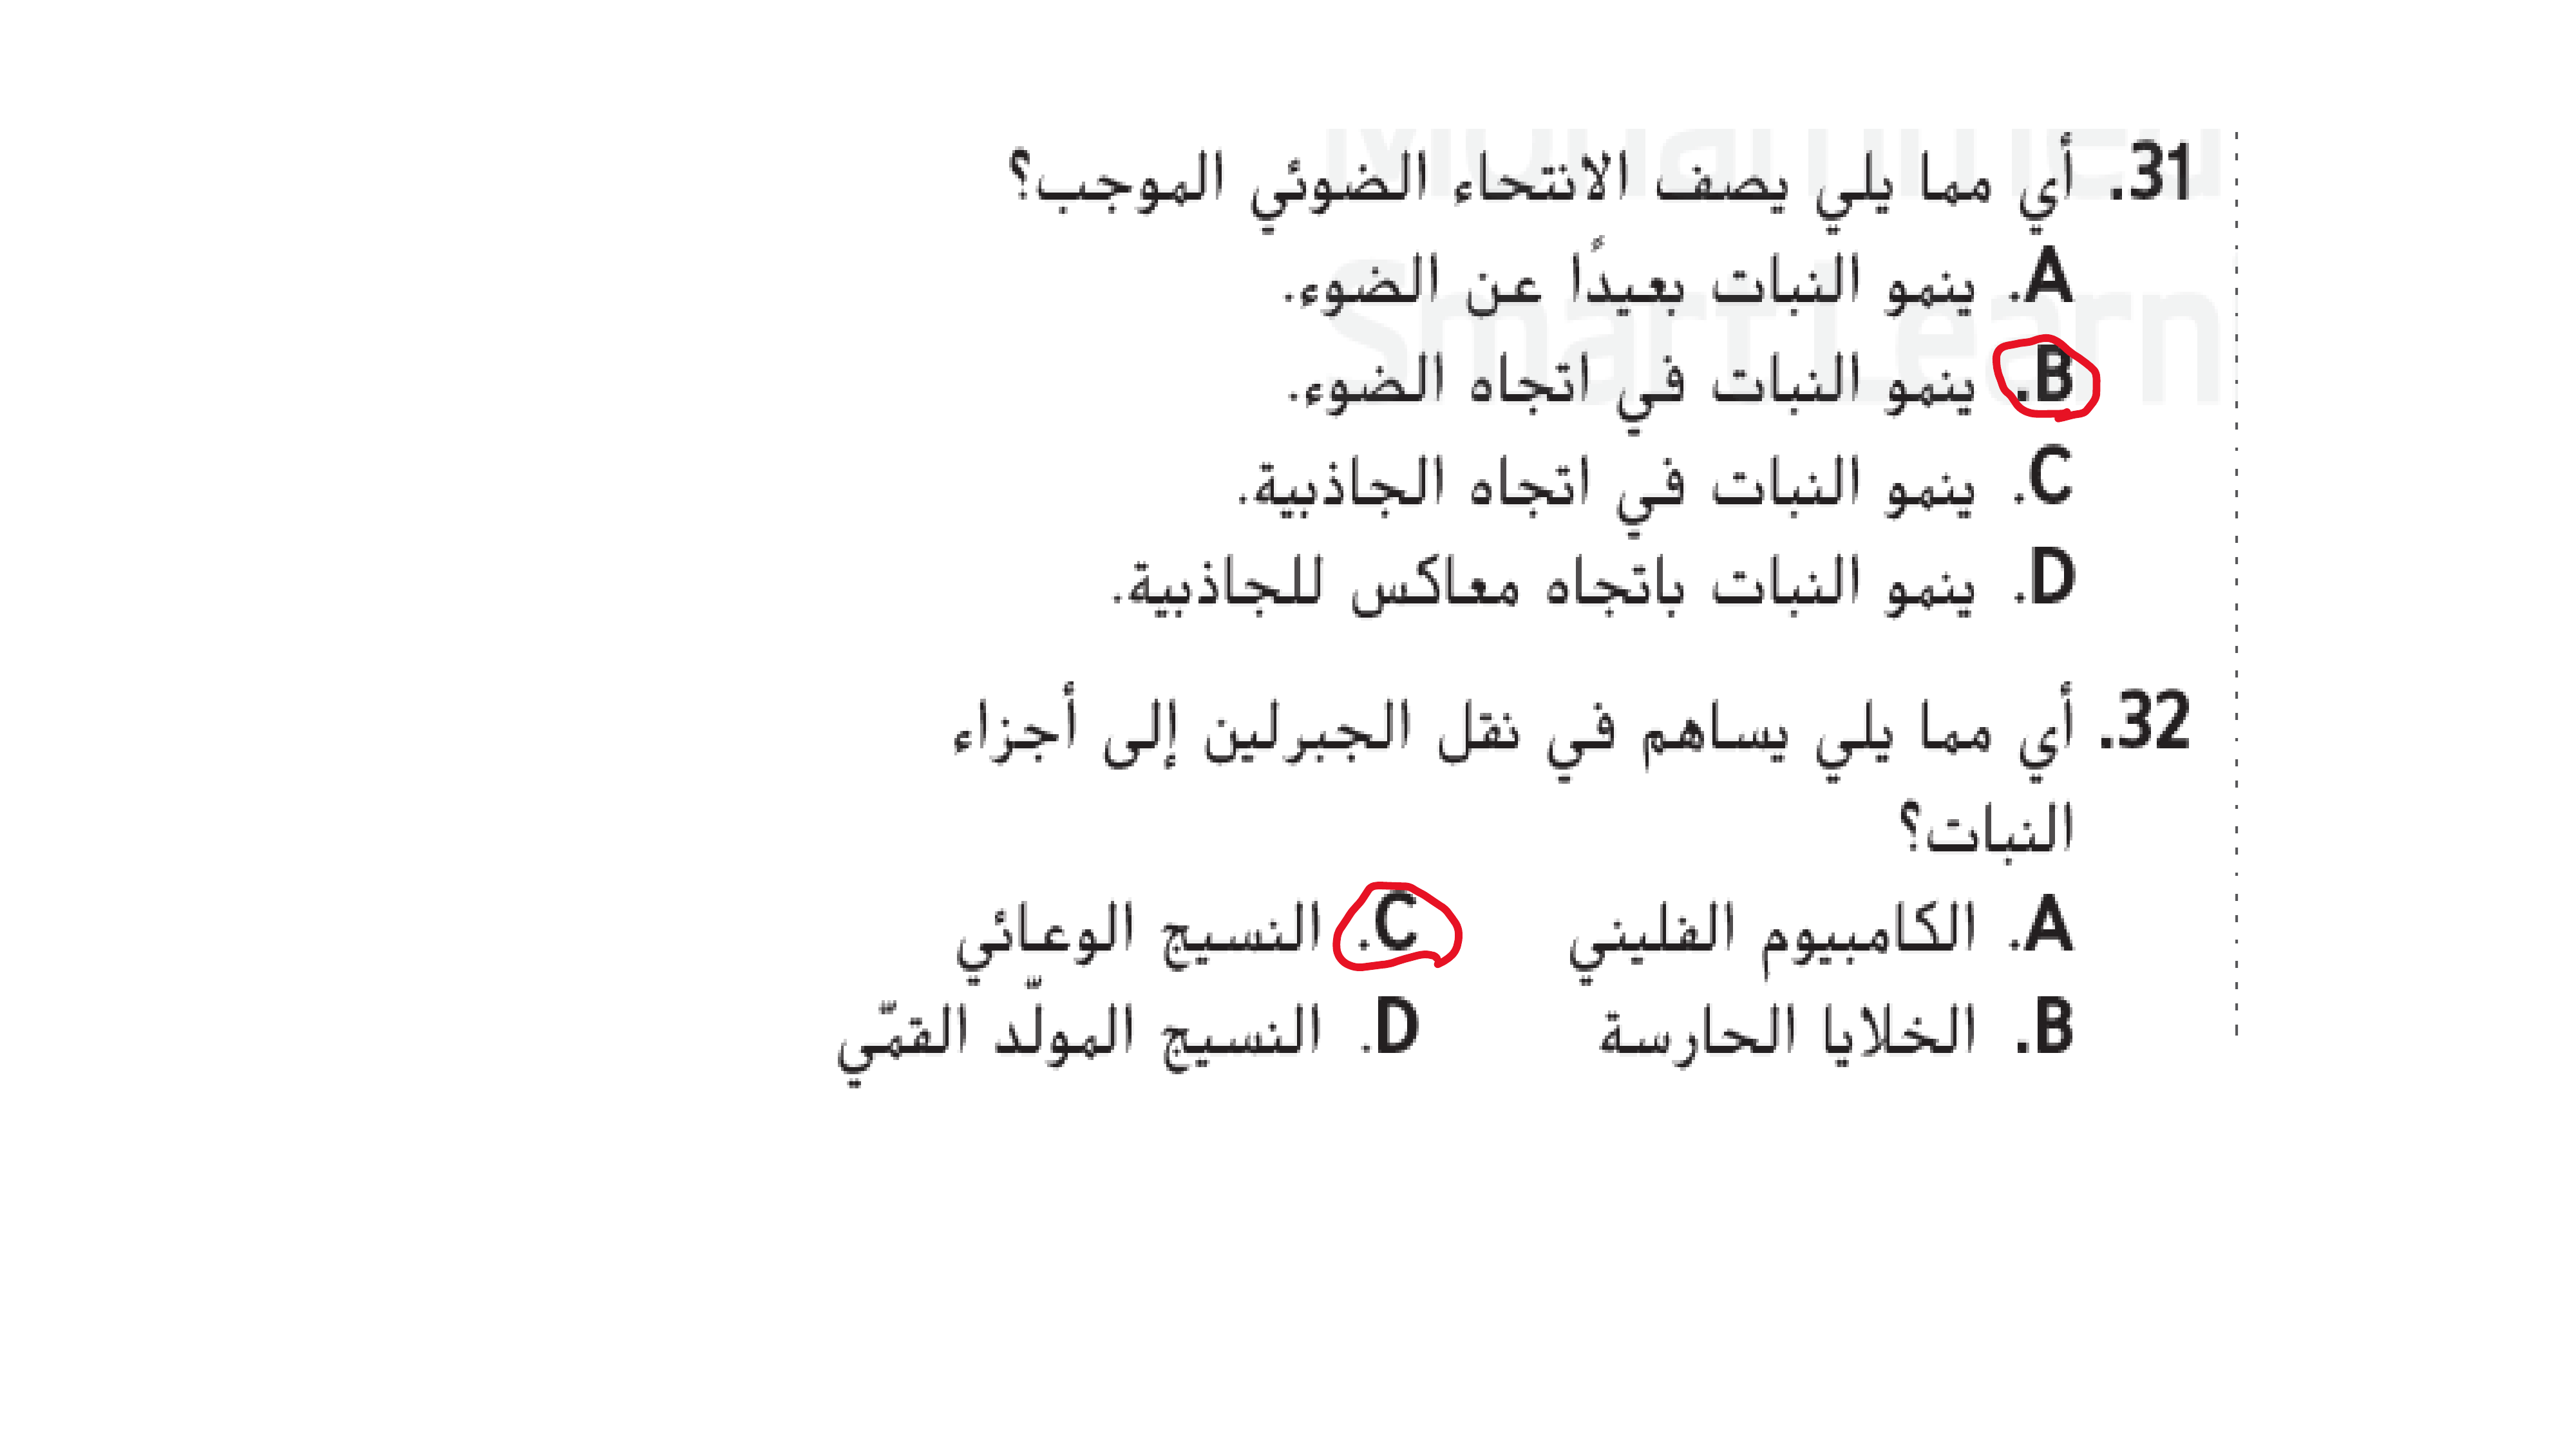 31. أي مما يلي يصف الانتحاء الضوئي الموجب؟
A. ينمو النبات بعيدًا عن الضوء.
B. ينمو النبات في اتجاه الضوء.
C. ينمو النبات في اتجاه الجاذبية.
D. ينمو النبات باتجاه معاكس للجاذبية.
32. أي مما يلي يساهم في نقل الجبرلين إلى أجزاء
النبات؟
A. الكامبيوم الفليني
C. النسيج الوعائي
B. الخلايا الحارسة
D. النسيج المولّد القمّي
Mohammed
Smart Learn